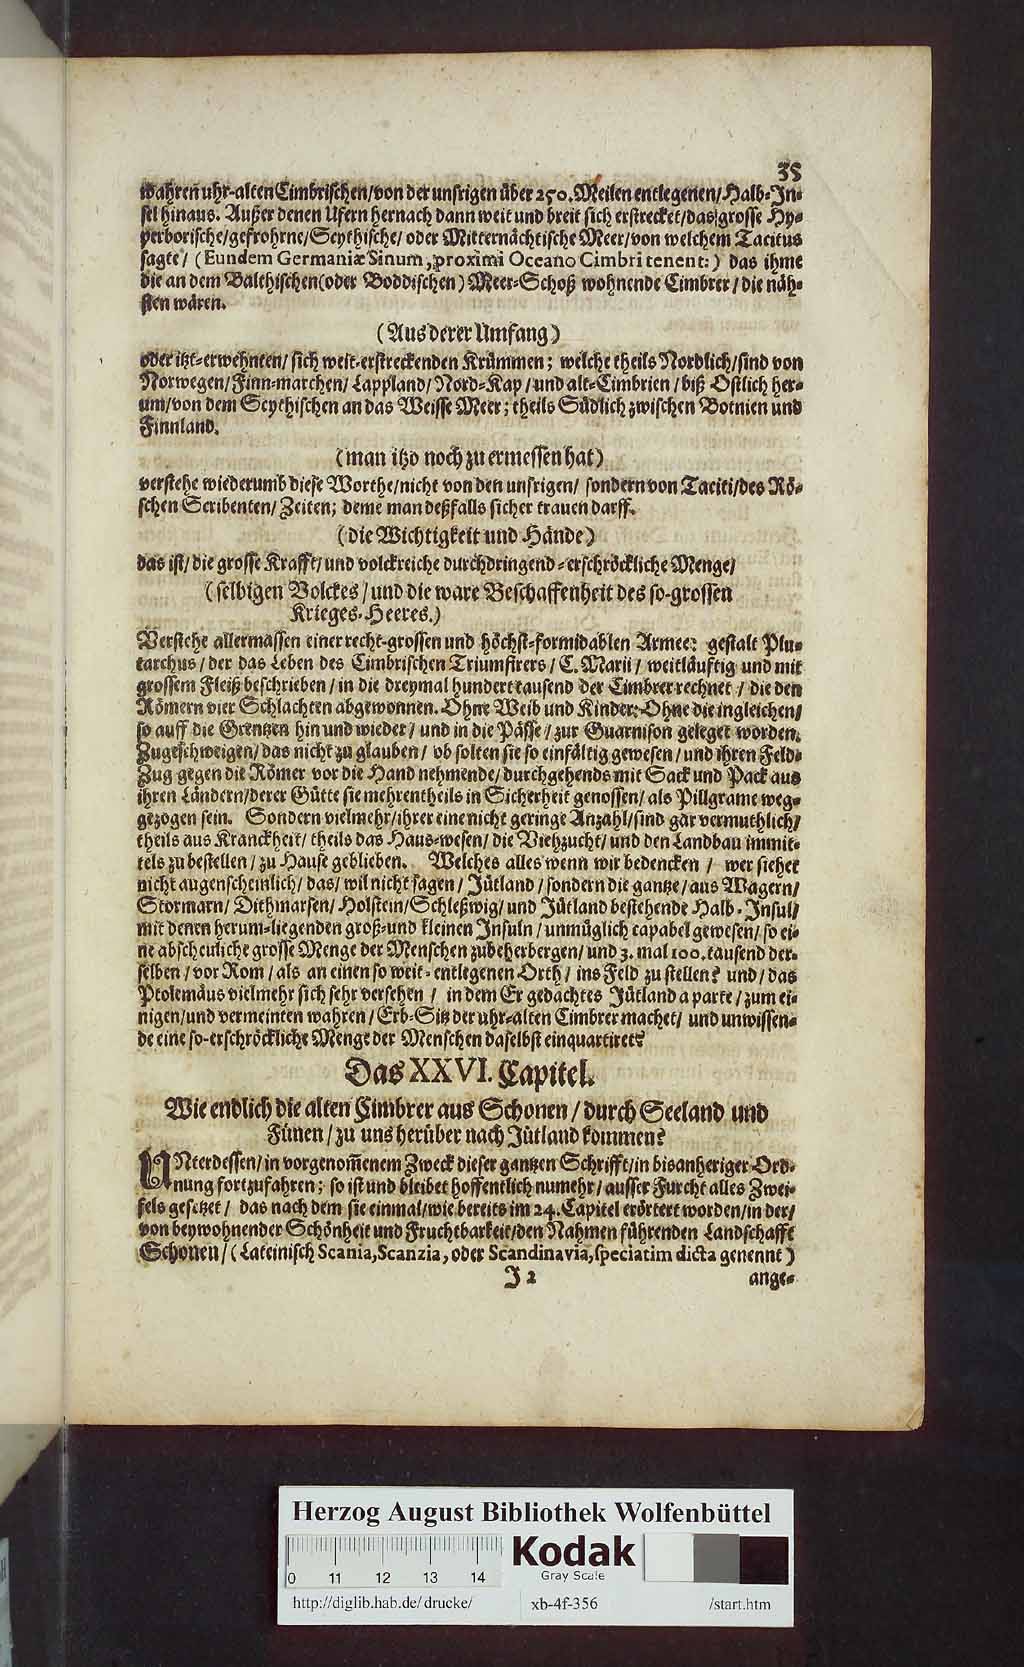 35
wahren uhr-alten Cimbrischen/von der unsrigen über 250. Meilen entlegenen/Halb-In-
sel hinaus. Außer denen Ufern hernach dann weit und breit sich erstrecket/das grosse Hy-
perborische/gefrohrne/Scythische/ oder Mitternächtische Meer/von welchem Tacitus
sagte/ (Eundem Germaniæ Sinum, proximi Oceano Cimbri tenent:) das ihme
die an dem Balthischen(oder Boddischen) Meer-Schoß wohnende Cimbrer/ die näh-
sten wären.
(Aus derer Umfang)
oder itzt-erwehnten/ sich weit-erstreckenden Krümmen; welche theils Nordlich/sind von
Norwegen/Finn-marchen/Lappland/Nord-Kap/und alt-Cimbrien/biß Ostlich her-
um/von dem Scythischen an das Weisse Meer; theils Südlich zwischen Botnien und
Finnland.
(man itzo noch zu ermessen hat)
verstehe wiederumb diese Worthe/nicht von den unsrigen/ sondern von Taciti/des Rö-
schen Scribenten/Zeiten; deme man deßfalls sicher trauen darff.
(die Wichtigkeit und Hände)
das ist/die grosse Krafft/und volckreiche durchdringend-erschröckliche Menge/
(selbigen Volckes/und die ware Beschaffenheit des so-grossen
Krieges-Heeres.)
Verstehe allermassen einer recht-grossen und höchst-formidablen Armee: gestalt Plu-
tarchus/der das Leben des Cimbrischen Triumfirers/ C. Marii/ weitläuftig und mit
grossem Fleiß beschrieben/in die dreymal hundert tausend der Cimbrer rechnet/ die den
Römern vier Schlachten abgewonnen. Ohne Weib und Kinder: Ohne die ingleichen/
so auff die Grentzen hin und wieder/ und in die Pässe/ zur Guarnison geleget worden.
Zugeschweigen/das nicht zu glauben/ ob solten sie so einfältig gewesen/und ihren Feld-
Zug gegen die Römer vor die Hand nehmende/durchgehends mit Sack und Pack aus
ihren Ländern/derer Gütte sie mehrentheils in Sicherheit genossen/als Pillgrame weg-
gezogen sein. Sondern vielmehr/ihrer eine nicht geringe Anzahl/sind gar vermuthlich/
theils aus Kranckheit/theils das Haus-wesen/ die Viehzucht/und den Landbau immit-
tels zu bestellen/zu Hause geblieben. Welches alles wenn wir bedencken/ wer siehet
nicht augenscheinlich/das/wil nicht sagen/ Jütland/sondern die gantze/aus Wagern/
Stormarn/Dithmarsen/Holstein/Schleßwig/und Jütland bestehende Halb-Insul/
mit denen herum-liegenden groß-und kleinen Insuln/unmüglich capabel gewesen/so ei-
ne abscheuliche grosse Menge der Menschen zubeherbergen/und 3. mal 100. tausend der-
selben/vor Rom/als an einen so weit-entlegenen Orth/ ins Feld zu stellen? und/das
Ptolemäus vielmehr sich sehr versehen/ in dem Er gedachtes Jütland a parte/zum ei-
nigen/und vermeinten wahren/Erb-Sitz der uhr-alten Cimbrer machet/ und unwissen-
de eine so-erschröckliche Menge der Menschen daselbst einquartiret?
Das XXVI. Capitel.
Wie endlich die alten Cimbrer aus Schonen/durch Seeland und
Fünen/zu uns herüber nach Jütland kommen?
UNterdessen/in vorgenom̃enem Zweck dieser gantzen Schrifft/in bisanheriger Ord-
nung fortzufahren; so ist und bleibet hoffentlich numehr/ausser Furcht alles Zwei-
fels gesetzet/ das nach dem sie einmal/wie bereits im 24. Capitel erörtert worden/in der/
von beywohnender Schönheit und Fruchtbarkeit/den Nahmen führenden Landschafft
Schonen/(Lateinisch Scania, Scanzia, oder Scandinavia, speciatim dicta genennt)
J 2
ange-
Herzog August Bibliothek Wolfenbüttel
0 11 12 13 14
Kodak
Gray Scale
http://diglib.hab.de/drucke/ xb-4f-356 /start.htm